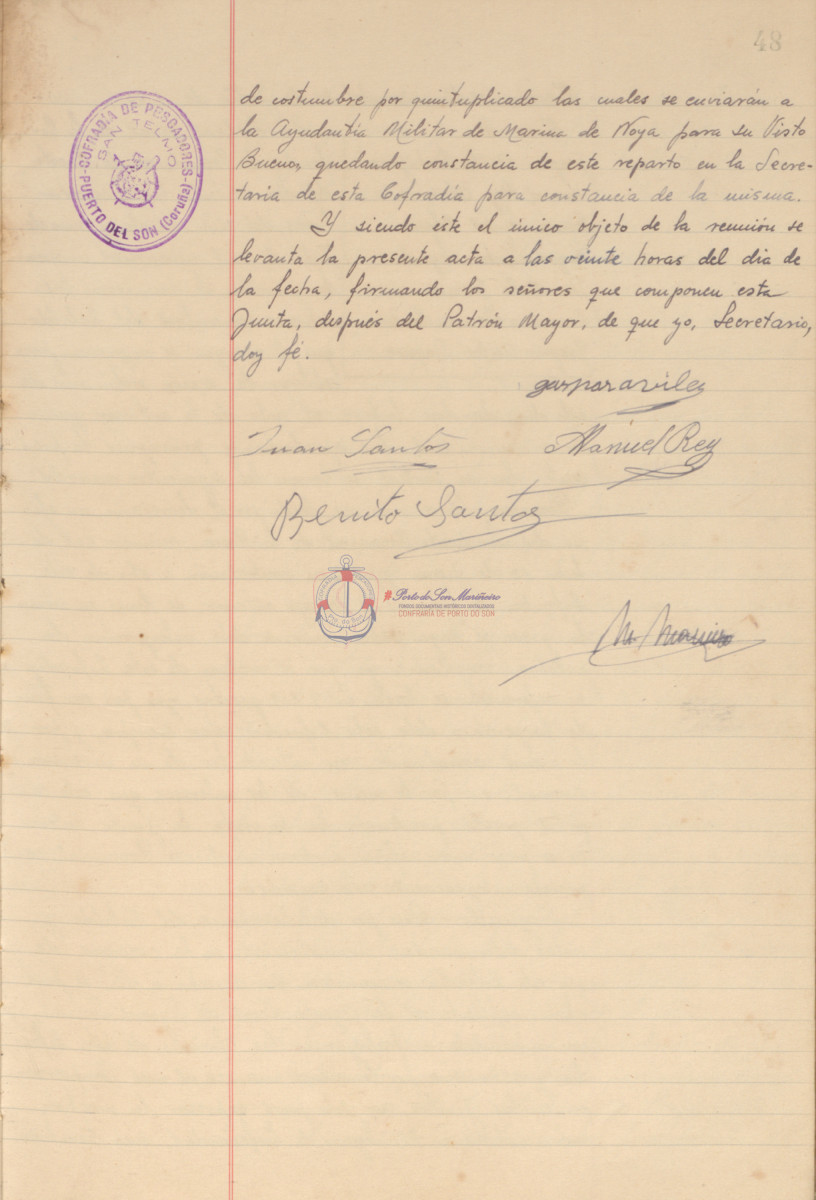 48
COFRADÍA DE PESCADORES
SAN TELMO
PUERTO DEL SON (Coruña)
de costumbre por quintuplicado las cuales se enviarán a
la Ayudantía Militar de Marina de Noya para su Visto
Bueno, quedando constancia de este reparto en la Secre-
taría de esta Cofradía para constancia de la misma.
Y siendo éste el único objeto de la reunión se
levanta la presente acta a las veinte horas del dia de
la fecha, firmando los señores que componen esta
Junta, después del Patrón Mayor, de que yo, Secretario,
doy fé.
gaspar aviles
Juan Santos
Manuel Rey
Benito Santos
#Porto do Son Mariñeiro
FONDOS DOCUMENTAIS HISTÓRICOS DIXITALIZADOS
CONFRARÍA DE PORTO DO SON
M.